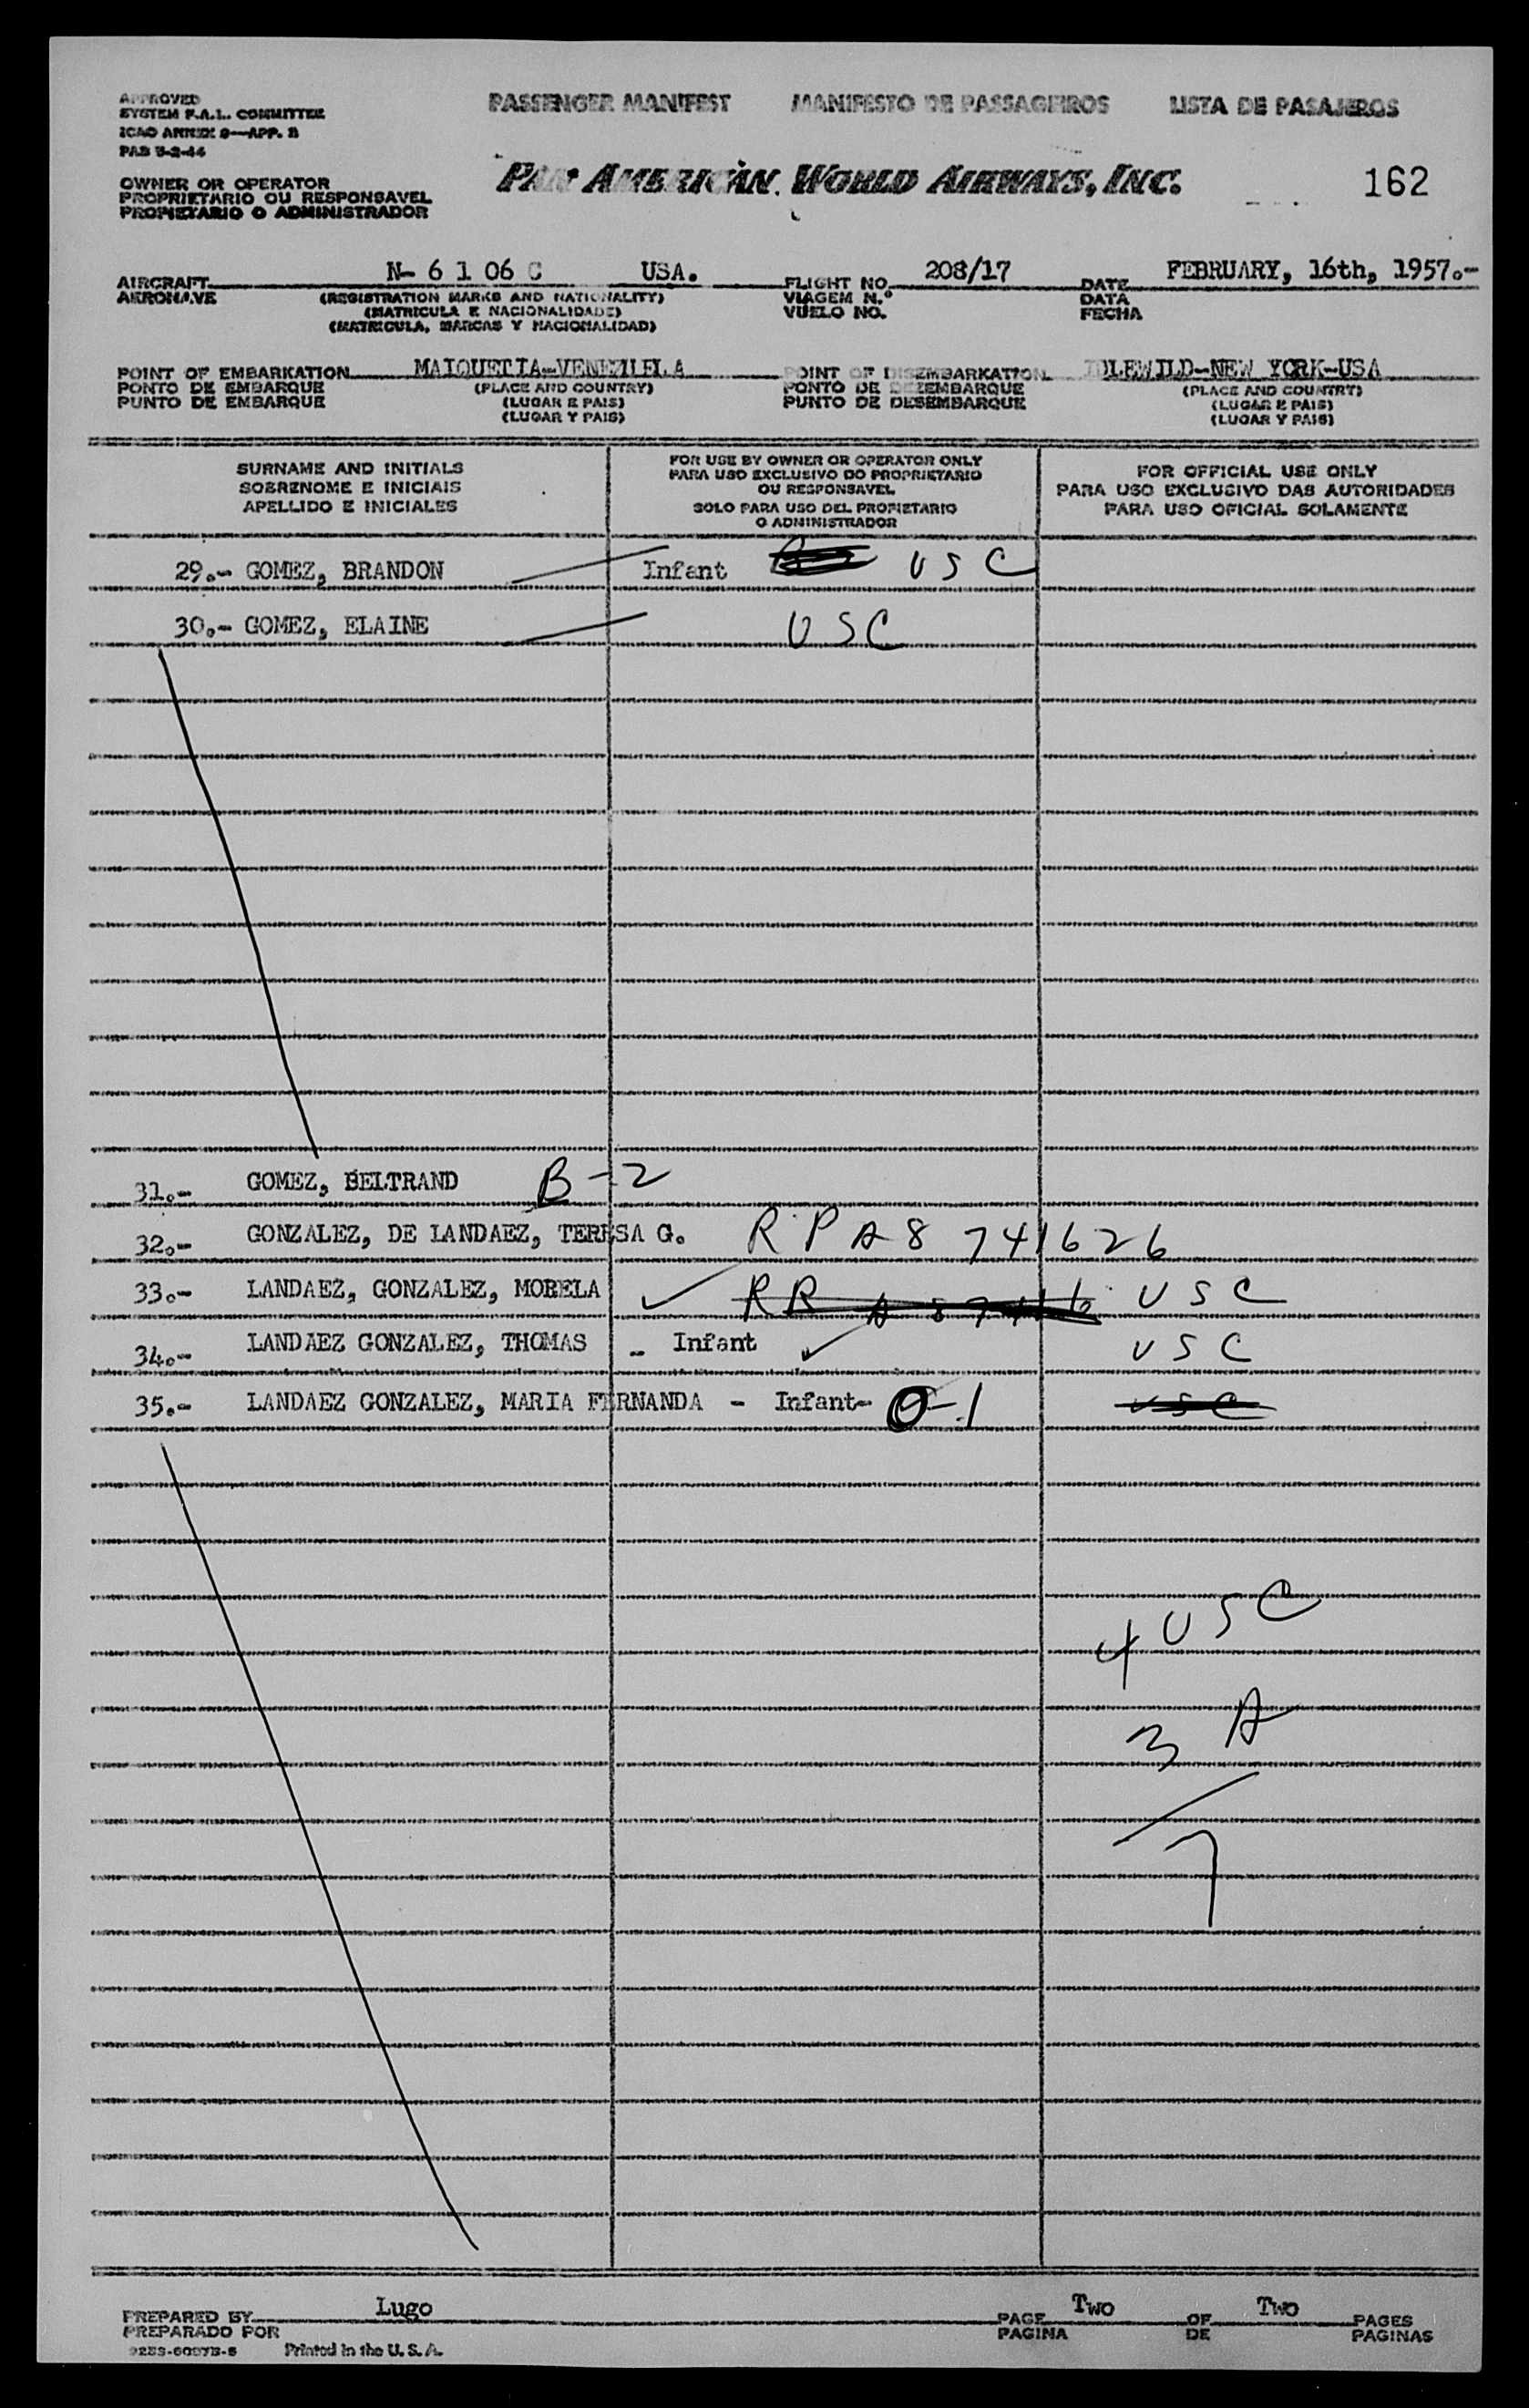 APPROVED
SYSTEM F.A.L. COMMITTEE
ICAO ANNEX 9—APP. B
PAB 5-2-44
PASSENGER MANIFEST MANIFESTO DE PASSAGEIROS LISTA DE PASAJEROS
OWNER OR OPERATOR
PROPRIETARIO OU RESPONSAVEL
PROPIETARIO O ADMINISTRADOR
PAN AMERICAN WORLD AIRWAYS, INC.
162
AIRCRAFT N-6106C USA. FLIGHT NO. 208/17 DATE FEBRUARY, 16th, 1957.-
AERONAVE (REGISTRATION MARKS AND NATIONALITY) VIAGEM N.º DATA
(MATRICULA E NACIONALIDADE) VUELO NO. FECHA
(MATRICULA, MARCAS Y NACIONALIDAD)
POINT OF EMBARKATION MAIQUETIA-VENEZUELA POINT OF DISEMBARKATION IDLEWILD-NEW YORK-USA
PONTO DE EMBARQUE (PLACE AND COUNTRY) PONTO DE DEZEMBARQUE (PLACE AND COUNTRY)
PUNTO DE EMBARQUE (LUGAR E PAIS) PUNTO DE DESEMBARQUE (LUGAR E PAIS)
(LUGAR Y PAIS) (LUGAR Y PAIS)
SURNAME AND INITIALS
SOBRENOME E INICIAIS
APELLIDO E INICIALES
FOR USE BY OWNER OR OPERATOR ONLY
PARA USO EXCLUSIVO DO PROPRIETARIO
OU RESPONSAVEL
SOLO PARA USO DEL PROPIETARIO
O ADMINISTRADOR
FOR OFFICIAL USE ONLY
PARA USO EXCLUSIVO DAS AUTORIDADES
PARA USO OFICIAL SOLAMENTE
29.- GOMEZ, BRANDON Infant USC
30.- GOMEZ, ELAINE USC
31.- GOMEZ, BELTRAND B-2
32.- GONZALEZ, DE LANDAEZ, TERESA G. RP A8 741626
33.- LANDAEZ, GONZALEZ, MORELA RR A 8 7416 USC
34.- LANDAEZ GONZALEZ, THOMAS - Infant USC
35.- LANDAEZ GONZALEZ, MARIA FERNANDA - Infant- O-1 USC
4 USC
3 A
7
PREPARED BY Lugo PAGE Two OF Two PAGES
PREPARADO POR PAGINA DE PAGINAS
Printed in the U. S. A.